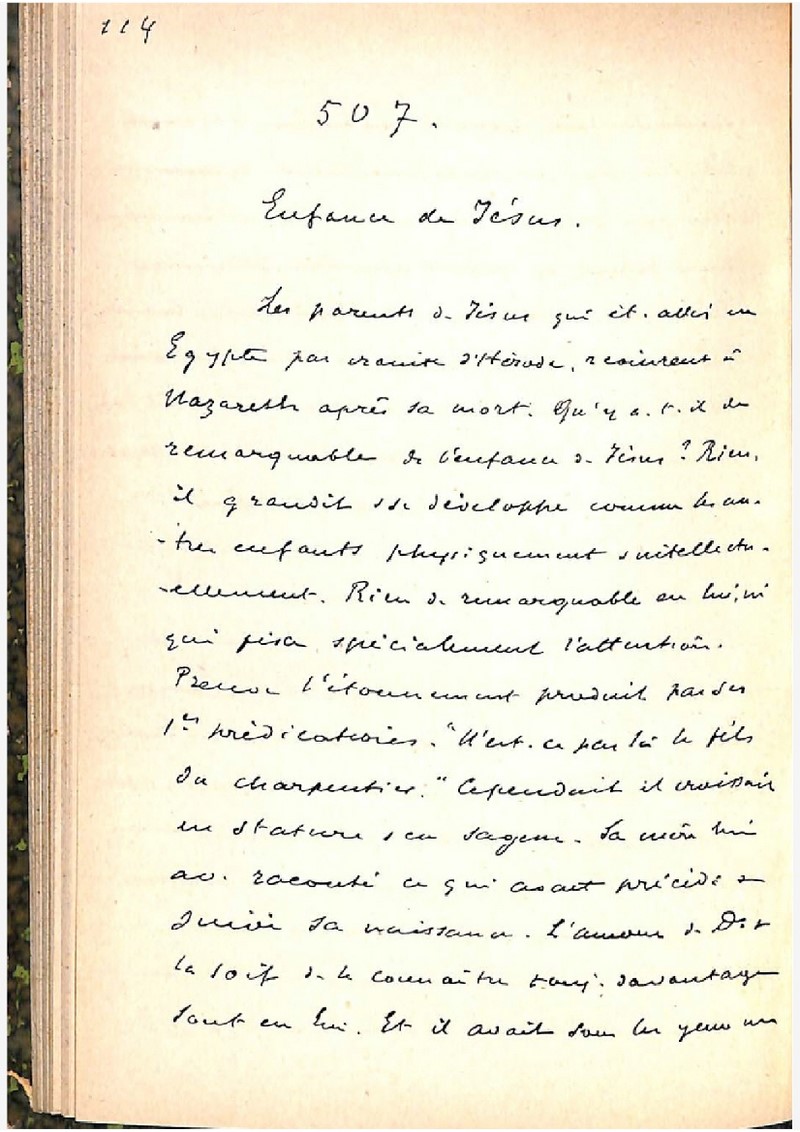 114
507.
Enfance de Jésus.
Les parents de Jésus qui ét. allés en
Egypte par crainte d'Hérode, revinrent à
Nazareth après sa mort. Qu'y a-t-il de
remarquable de l'enfance de Jésus? Rien,
il grandit & se développe comme les au-
-tres enfants physiquement & intellectu-
-ellement. Rien de remarquable en lui, ni
qui fixa spécialement l'attention.
Preuve l'étonnement produit par ses
1ères prédications. "N'est-ce pas là le fils
du charpentier." Cependant il croissait
en stature & en sagesse. Sa mère lui
av. raconté ce qui avait précédé &
suivi sa naissance. L'amour de D. &
la soif de le connaître touj. davantage
sont en lui. Et il avait sous les yeux un